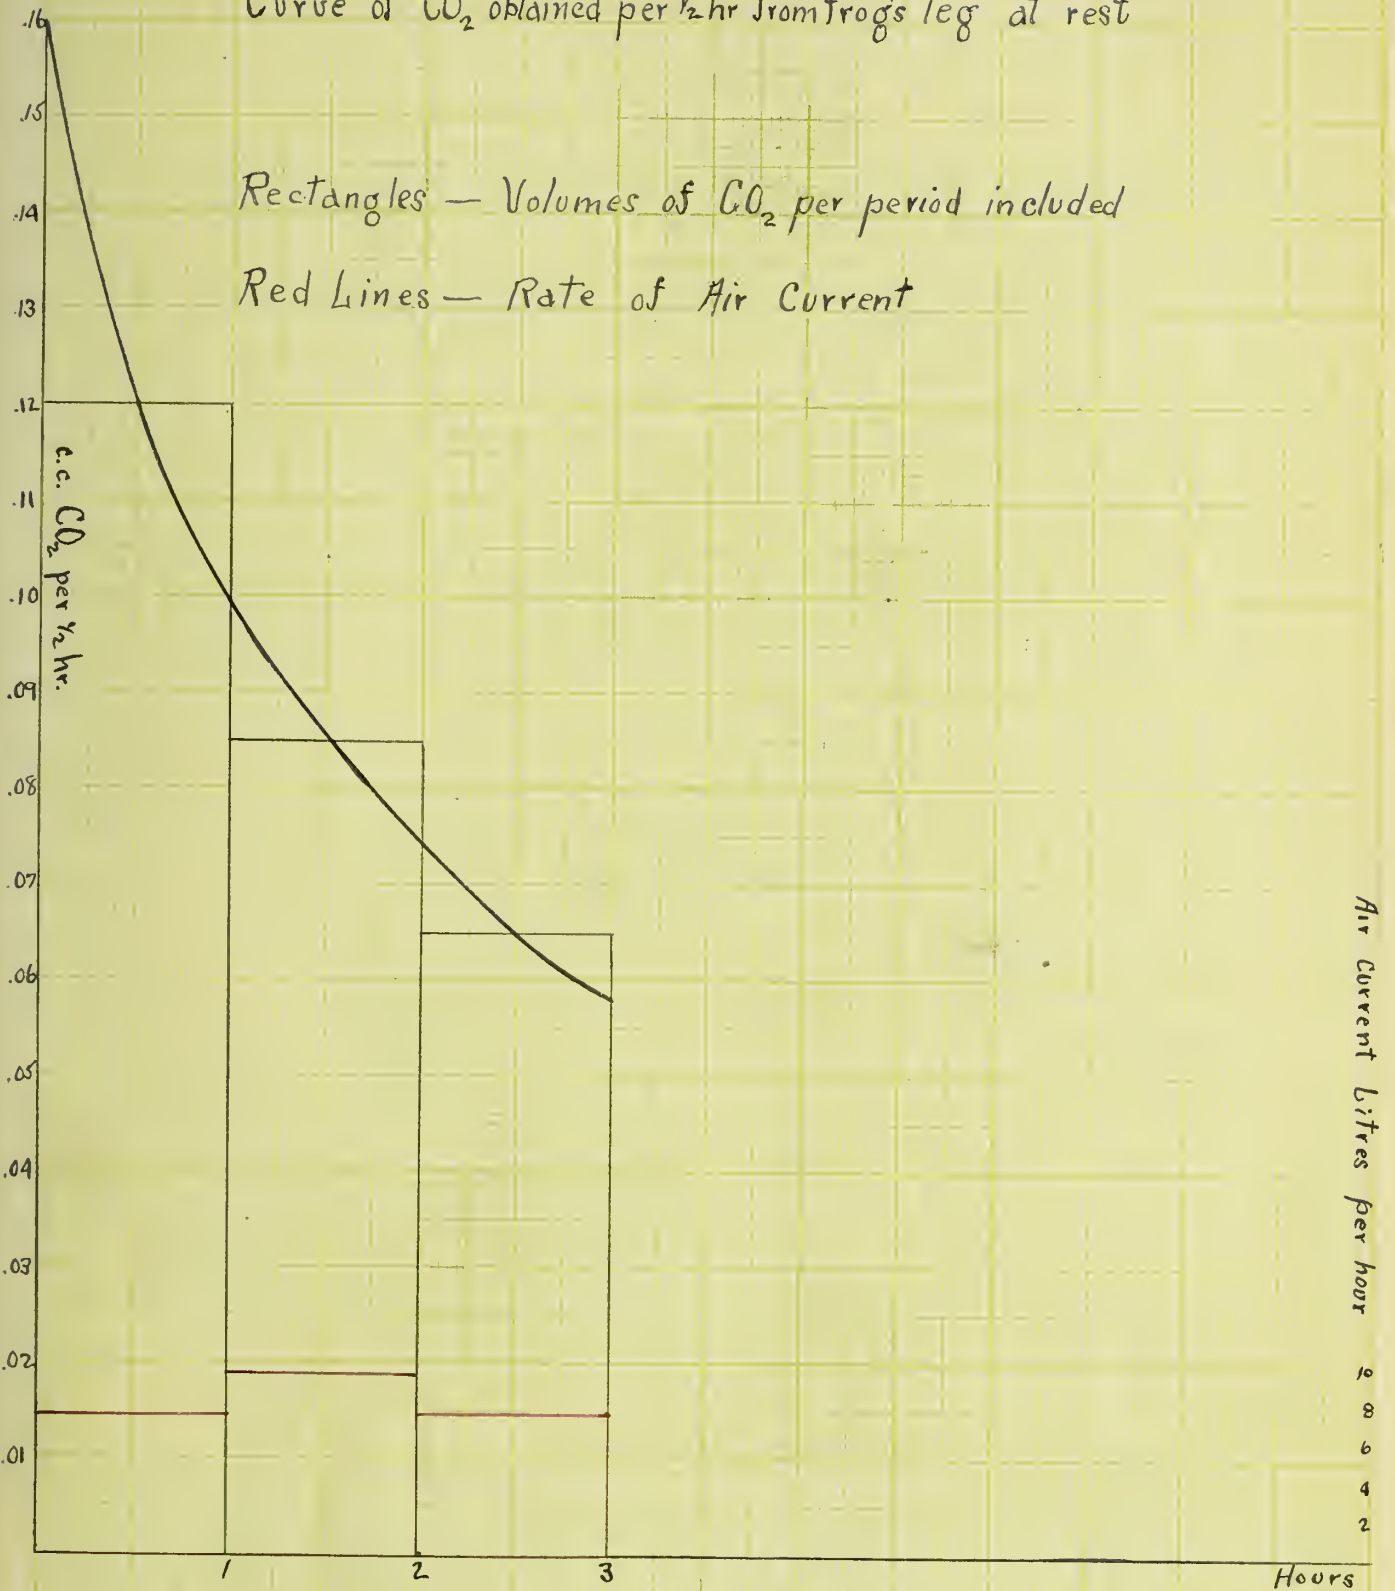 Curve of CO₂ obtained per ½ hr from frogs leg at rest
Rectangles — Volumes of CO₂ per period included
Red Lines — Rate of Air Current
.16
.15
.14
.13
.12
.11
.10
.09
.08
.07
.06
.05
.04
.03
.02
.01
c.c. CO₂ per ½ hr.
Air Current Litres per hour
10
8
6
4
2
1 2 3 Hours